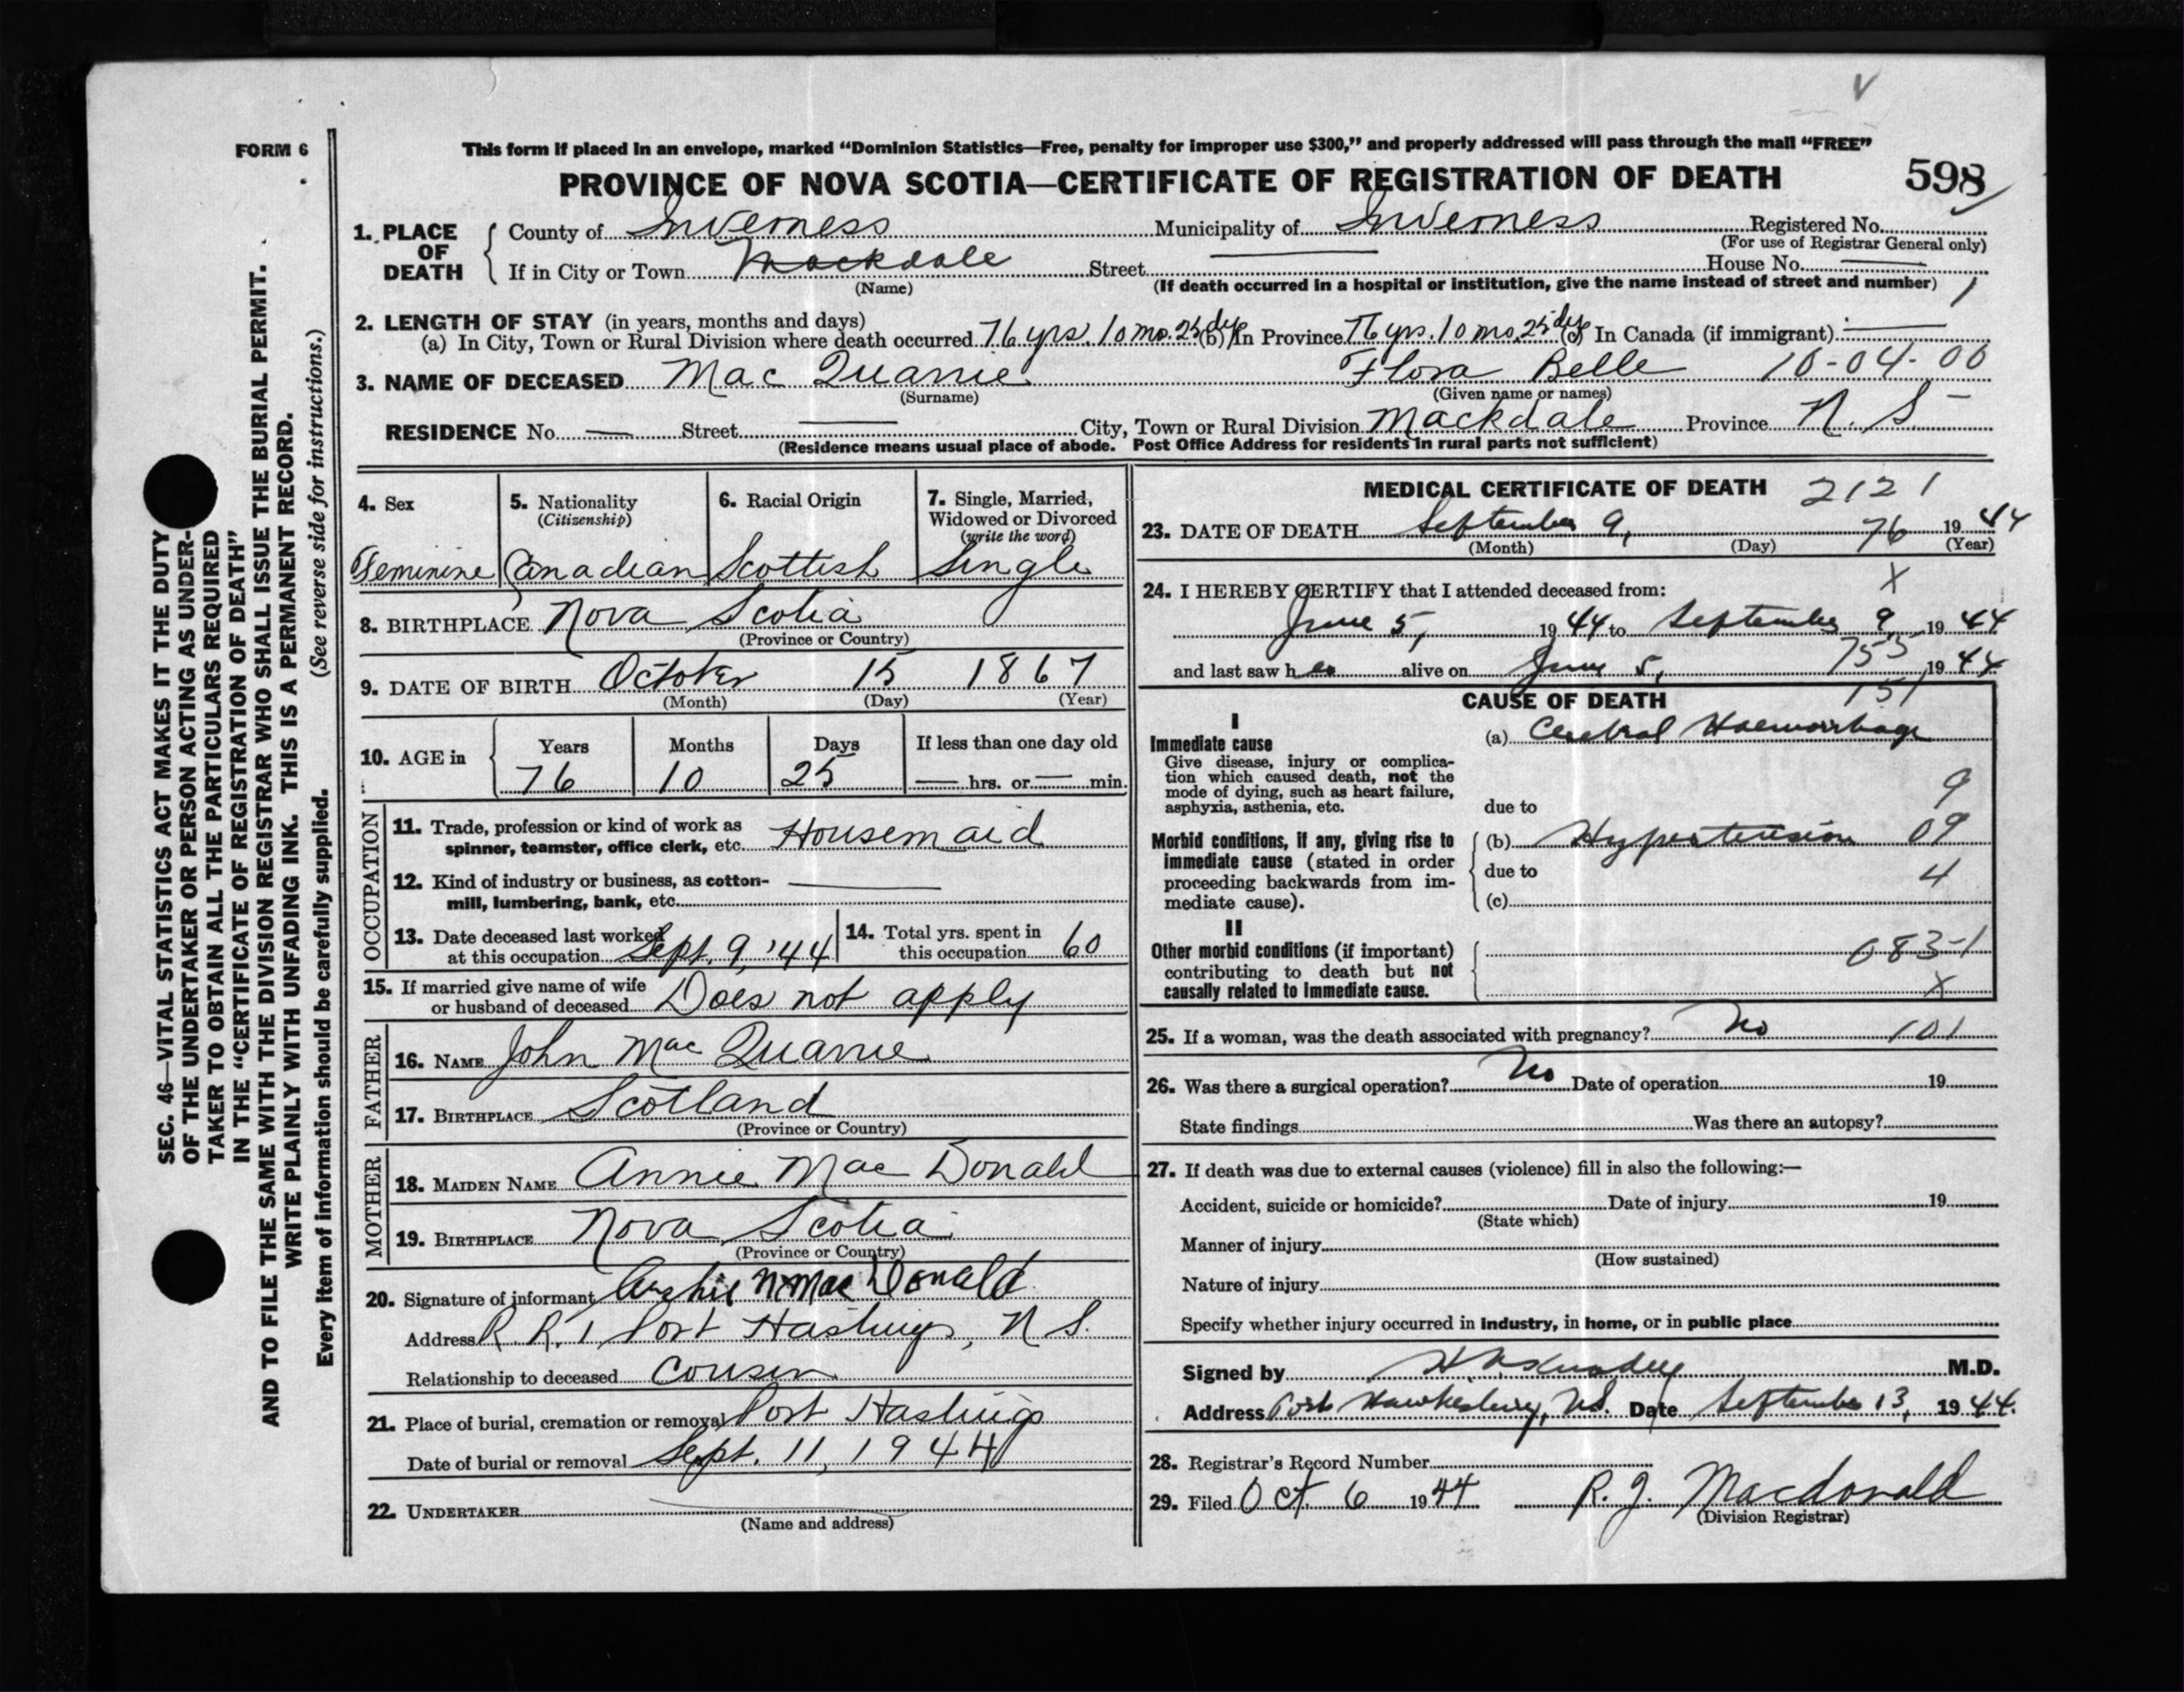 V
FORM 6
This form if placed in an envelope, marked “Dominion Statistics—Free, penalty for improper use $300,” and properly addressed will pass through the mail “FREE”
PROVINCE OF NOVA SCOTIA—CERTIFICATE OF REGISTRATION OF DEATH 598
1. PLACE OF DEATH County of Inverness Municipality of Inverness Registered No.
(For use of Registrar General only)
If in City or Town Mackdale Street — House No. —
(Name) (If death occurred in a hospital or institution, give the name instead of street and number) 1
2. LENGTH OF STAY (in years, months and days)
(a) In City, Town or Rural Division where death occurred 76 yrs. 10 mo. 25 dys (b) In Province 76 yrs. 10 mo. 25 dys (c) In Canada (if immigrant) —
3. NAME OF DECEASED Mac Quarrie Flora Belle 10-04-00
(Surname) (Given name or names)
RESIDENCE No. — Street — City, Town or Rural Division Mackdale Province N. S.
(Residence means usual place of abode. Post Office Address for residents in rural parts not sufficient)
4. Sex 5. Nationality (Citizenship) 6. Racial Origin 7. Single, Married, Widowed or Divorced (write the word)
Feminine Canadian Scottish Single
8. BIRTHPLACE Nova Scotia
(Province or Country)
9. DATE OF BIRTH October 15 1867
(Month) (Day) (Year)
10. AGE in Years Months Days If less than one day old
76 10 25 — hrs. or — min.
OCCUPATION
11. Trade, profession or kind of work as
spinner, teamster, office clerk, etc. Housemaid
12. Kind of industry or business, as cotton-
mill, lumbering, bank, etc. —
13. Date deceased last worked
at this occupation Sept. 9, '44
14. Total yrs. spent in
this occupation 60
15. If married give name of wife
or husband of deceased Does not apply
FATHER
16. NAME John Mac Quarrie
17. BIRTHPLACE Scotland
(Province or Country)
MOTHER
18. MAIDEN NAME Annie Mac Donald
19. BIRTHPLACE Nova Scotia
(Province or Country)
20. Signature of informant Archie N MacDonald
Address R. R. 1, Port Hastings, N S.
Relationship to deceased Cousin
21. Place of burial, cremation or removal Port Hastings
Date of burial or removal Sept. 11, 1944
22. UNDERTAKER
(Name and address)
MEDICAL CERTIFICATE OF DEATH 2121
23. DATE OF DEATH September 9, 76 1944
(Month) (Day) (Year)
24. I HEREBY CERTIFY that I attended deceased from: X
June 5, 1944 to September 9, 1944
and last saw her alive on June 5, 1944
CAUSE OF DEATH
I
Immediate cause
Give disease, injury or complica-
tion which caused death, not the
mode of dying, such as heart failure,
asphyxia, asthenia, etc.
(a) Cerebral Haemorrhage
9
due to
Morbid conditions, if any, giving rise to
immediate cause (stated in order
proceeding backwards from im-
mediate cause).
(b) Hypertension 09
due to 4
(c)
II
Other morbid conditions (if important)
contributing to death but not
causally related to immediate cause.
083-1
X
25. If a woman, was the death associated with pregnancy? No 101
26. Was there a surgical operation? No Date of operation 19
State findings Was there an autopsy?
27. If death was due to external causes (violence) fill in also the following:—
Accident, suicide or homicide? Date of injury 19
(State which)
Manner of injury
(How sustained)
Nature of injury
Specify whether injury occurred in industry, in home, or in public place
Signed by M.D.
Address Port Hawkesbury, N.S. Date September 13, 1944.
28. Registrar's Record Number
29. Filed Oct. 6 1944 R. J. Macdonald
(Division Registrar)
SEC. 46—VITAL STATISTICS ACT MAKES IT THE DUTY
OF THE UNDERTAKER OR PERSON ACTING AS UNDER-
TAKER TO OBTAIN ALL THE PARTICULARS REQUIRED
IN THE “CERTIFICATE OF REGISTRATION OF DEATH”
AND TO FILE THE SAME WITH THE DIVISION REGISTRAR WHO SHALL ISSUE THE BURIAL PERMIT.
WRITE PLAINLY WITH UNFADING INK. THIS IS A PERMANENT RECORD.
Every item of information should be carefully supplied. (See reverse side for instructions.)